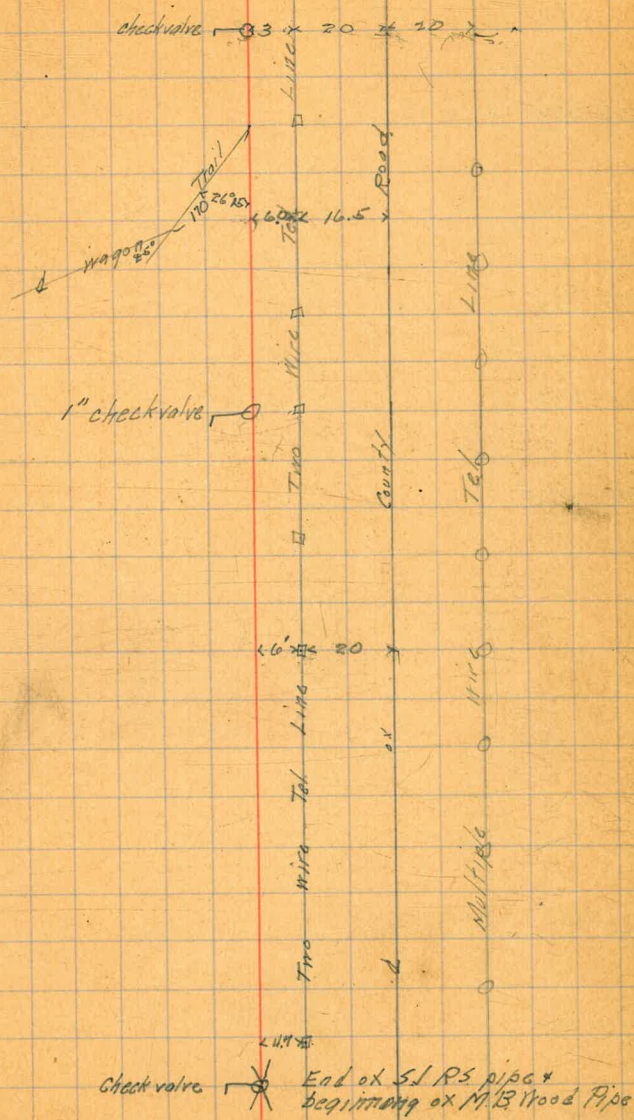 checkvalve 3 20 20
Line
Trail
Road
170° 26°
6.0 16.5
Tel
Wagon
26°
Line
Wire
1" checkvalve
Two
County
Tel
6' 20
Wire
Line
Tel
of
Wire
Multiple
Two
¢
11.7
Checkvalve End of S.J R.S. pipe &
beginning of M.B Wood Pipe